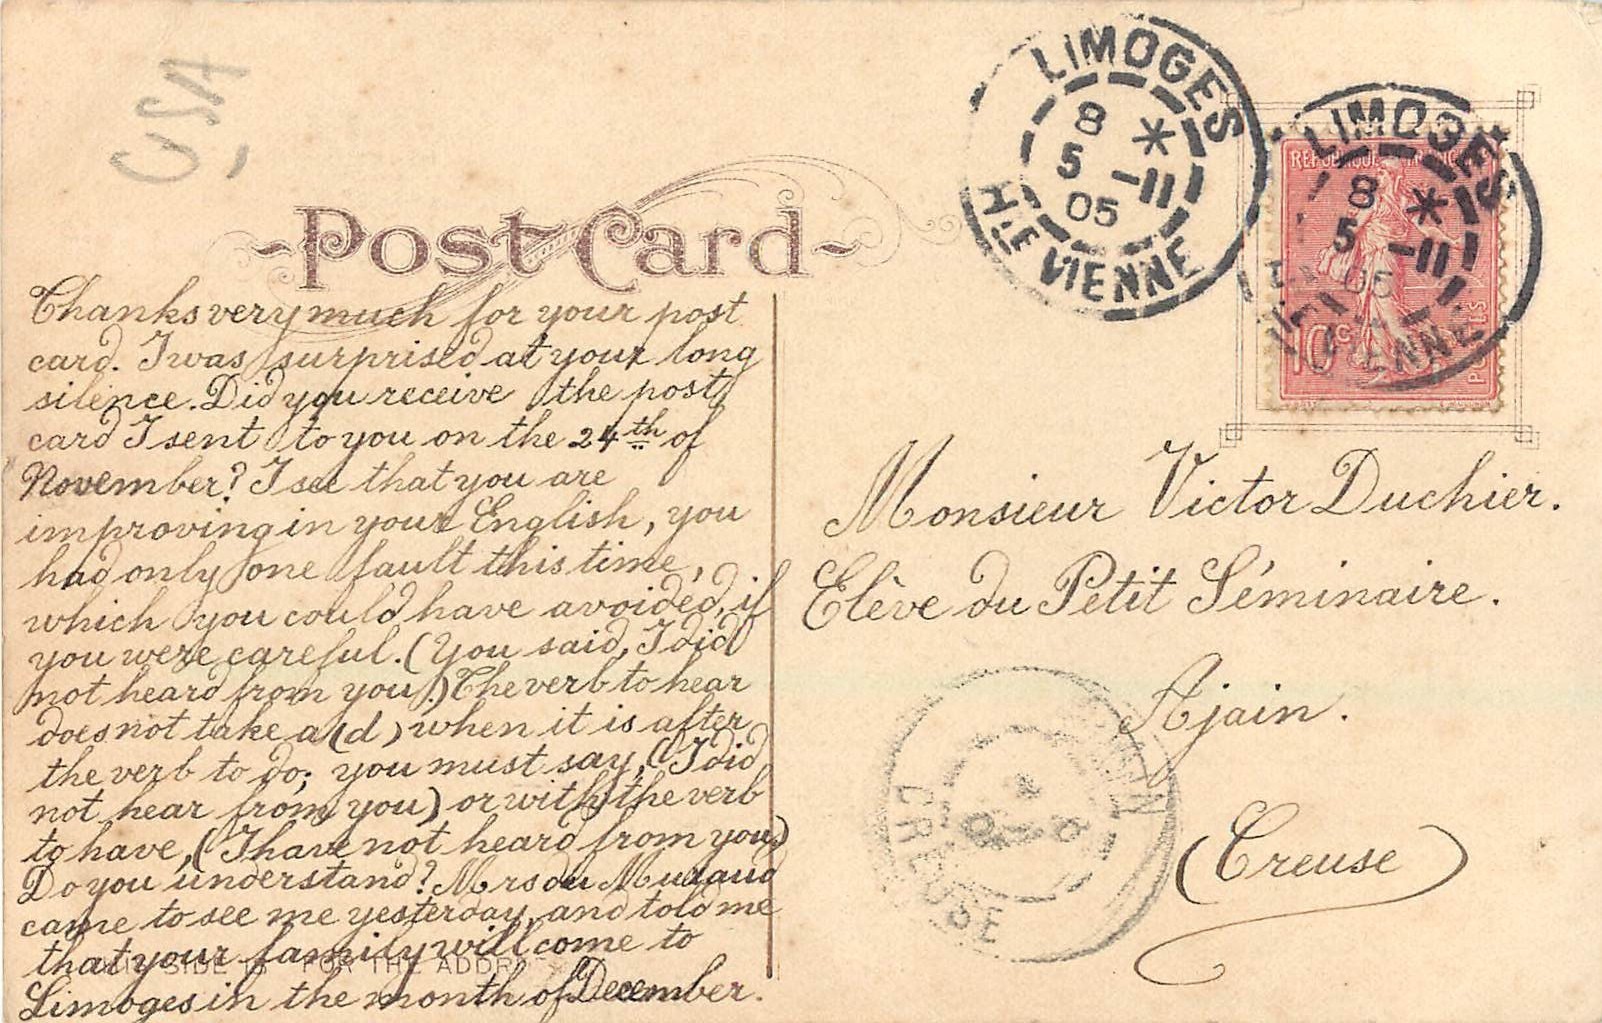 USA
Post Card
LIMOGES
8 *
5 -11
05
Hte VIENNE
LIMOGES
8 *
5 -11
05
VIENNE
REPUBLIQUE
10c
POSTES
Thanks very much for your post
card. I was surprised at your long
silence. Did you receive the post
card I sent to you on the 24th of
November? I see that you are
improving in your English, you
had only one fault this time,
which you could have avoided, if
you were careful. (You said, I did
not heard from you!) The verb to hear
does not take a (d) when it is after
the verb to do; you must say, (I did
not hear from you) or with the verb
to have, (I have not heard from you)
Do you understand? Mrs du
came to see me yesterday, and told me
that your family will come to
Limoges in the month of December.
SIDE IS FOR THE ADDRESS
Monsieur Victor Duchier.
Elève du Petit Séminaire.
Ajain.
(Creuse)
CREUSE